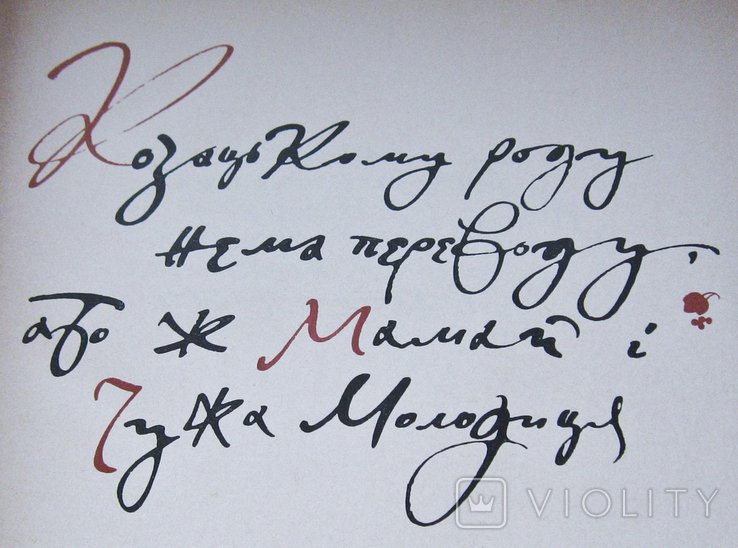 Козацькому роду
нема переводу,
або ж Мамай і
Чужа Молодиця
VIOLITY